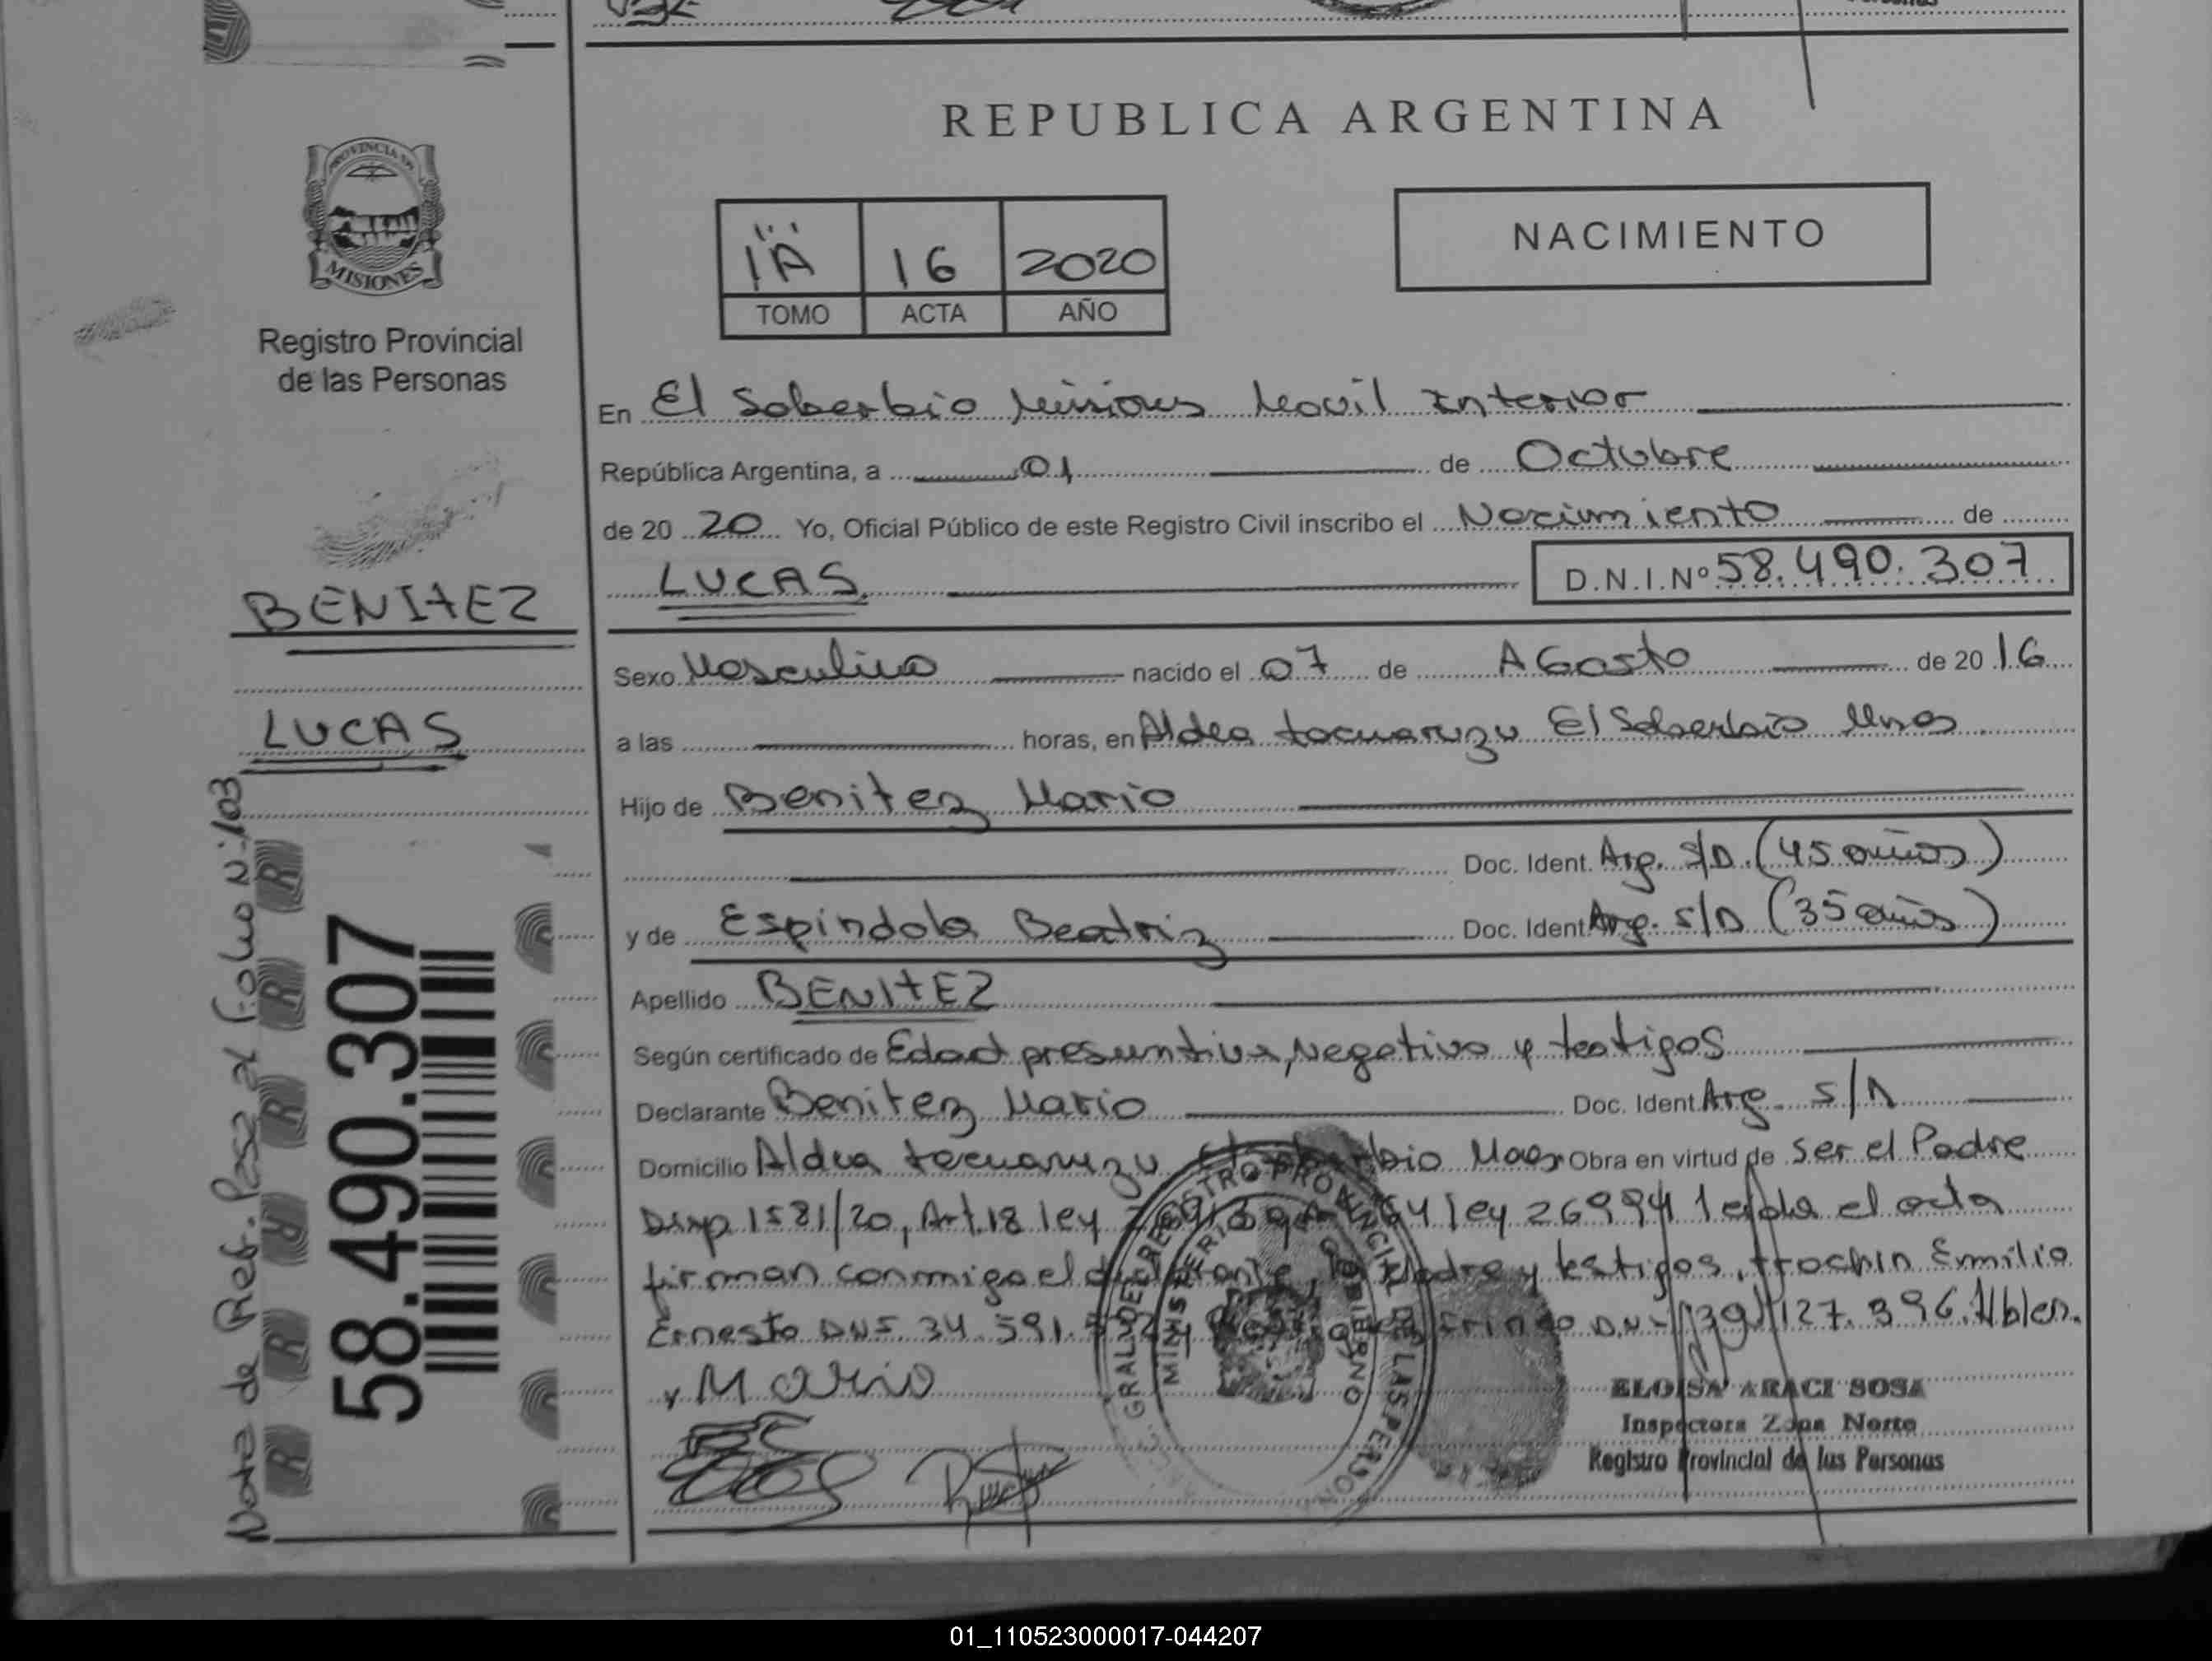 REPUBLICA ARGENTINA
NACIMIENTO
1A 16 2020
TOMO ACTA AÑO
PROVINCIA DE
MISIONES
Registro Provincial
de las Personas
BENITEZ
LUCAS
Nota de Ref. Pasa al Folio Nº 103
58.490.307
En El Soberbio Misiones Movil Interior
República Argentina, a 01 de Octubre
de 20 20 Yo, Oficial Público de este Registro Civil inscribo el Nacimiento de
LUCAS D.N.I.Nº 58.490.307
Sexo Masculino nacido el 07 de AGosto de 20 16
a las horas, en Aldea tacuaruzu El Soberbio Mnes
Hijo de Benitez Mario
Doc. Ident. Arg. S/D. (45 años)
y de Espindola Beatriz Doc. Ident. Arg. S/D (35 años)
Apellido BENITEZ
Según certificado de Edad presuntiva, Negativo y testigos
Declarante Benitez Mario Doc. Ident. Arg. S/D
Domicilio Aldea tacuaruzu Obra en virtud de ser el Padre
Disp 1581/20, Art. 18 ley 64 ley 26994 leida el acta
firman conmigo el declarante, la Madre y testigos, Emilio
Ernesto DNI. 34.591.
Mario
REGISTRO PROVINCIAL DE LAS PERSONAS
MINISTERIO GOBIERNO
ELOISA ARACI SOSA
Inspectora Zona Norte
Registro Provincial de las Personas
01_110523000017-044207